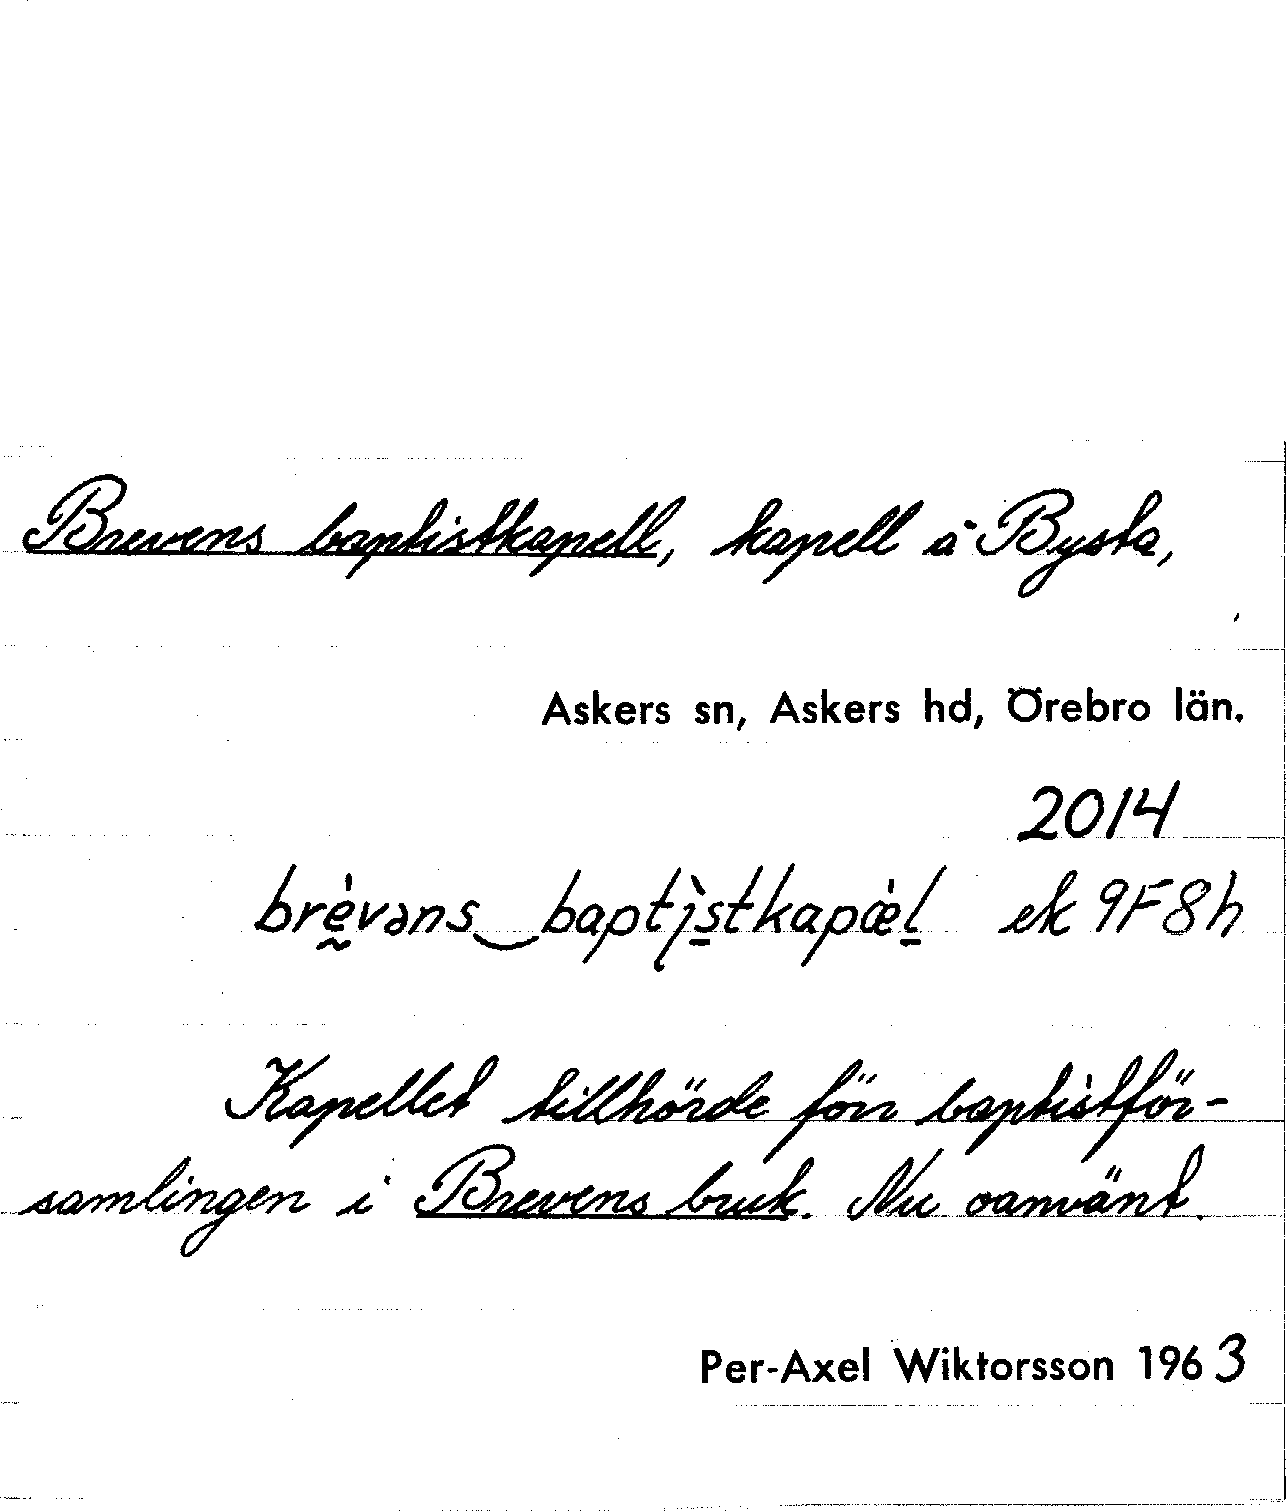 Brevens baptistkapell, kapell å Bysta,
Askers sn, Askers hd, Örebro län.
2014
brèvəns‿baptìstkapæ̀l ek 9F8h
Kapellet tillhörde förr baptistför-
samlingen i Brevens bruk. Nu oanvänt.
Per-Axel Wiktorsson 1963